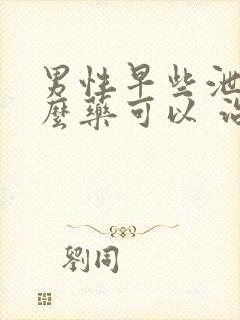 男性早些泄
麼藥可以 治
劉同